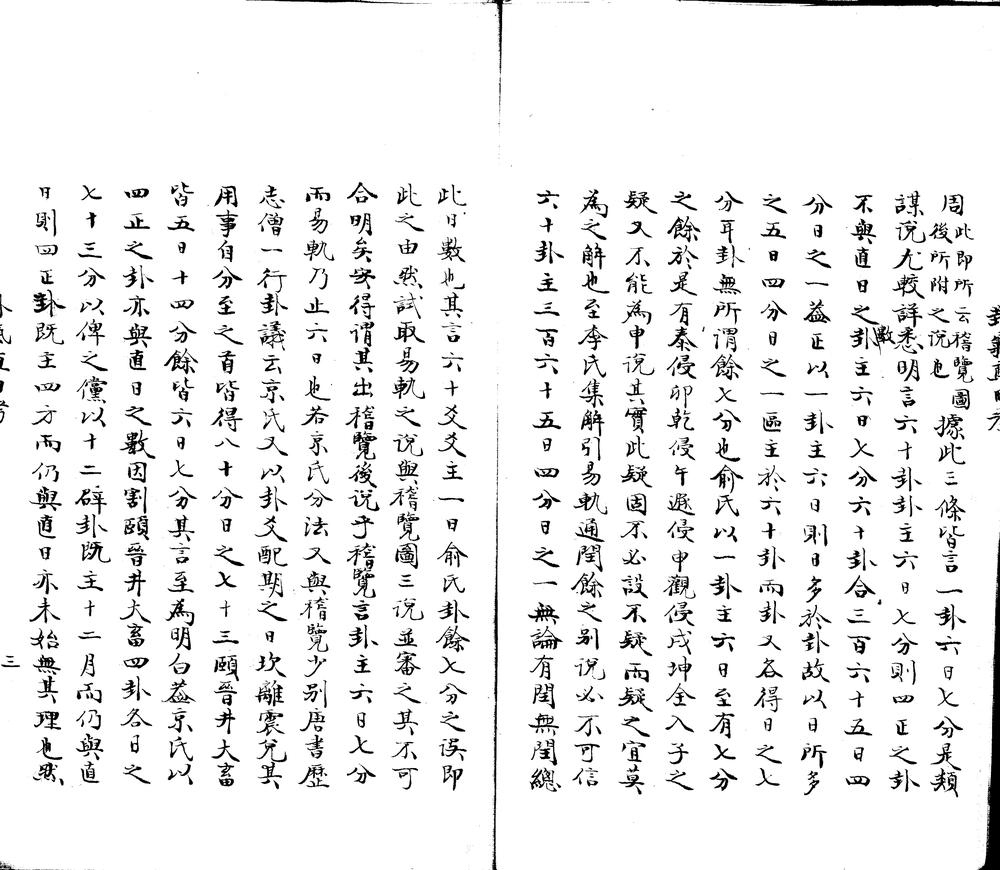 周此即所云稽覽圖後所附之說也據此三條皆言一卦六日七分是類
謀說尤較詳悉明言六十卦卦主六日七分則四正之卦
不與直日之卦數主六日七分六十卦合三百六十五日四
分日之一葢正以一卦主六日則日多於卦故以日所多
之五日四分日之一區主於六十卦而卦又各得日之七
分耳卦無所謂餘七分也俞氏以一卦主六日至有七分
之餘於是有泰侵卯乾侵午遯侵申觀侵戌坤全入子之
疑又不能為申說其實此疑固不必設不疑而疑之宜莫
為之解也至李氏集解引易軌通閏餘之别說必不可信
六十卦主三百六十五日四分日之一無論有閏無閏總
此日數也其言六十爻爻主一日俞氏卦餘七分之误即
此之由然試取易軌之说與稽覽圖三说並審之其不可
合明矣安得謂其出稽覽後说乎稽覽言卦主六日七分
而易軌乃止六日也若京氏分法又與稽覽少别唐書歷
志僧一行卦議云京氏又以卦爻配期之日坎離震兌其
用事自分至之首皆得八十分日之七十三頤晉井大畜
皆五日十四分餘皆六日七分其言至為明白葢京氏以
四正之卦亦與直日之數因割頤晉井大畜四卦各日之
七十三分以俾之儻以十二辟卦既主十二月而仍與直
日則四正卦既主四方而仍與直日亦未始無其理也然
三